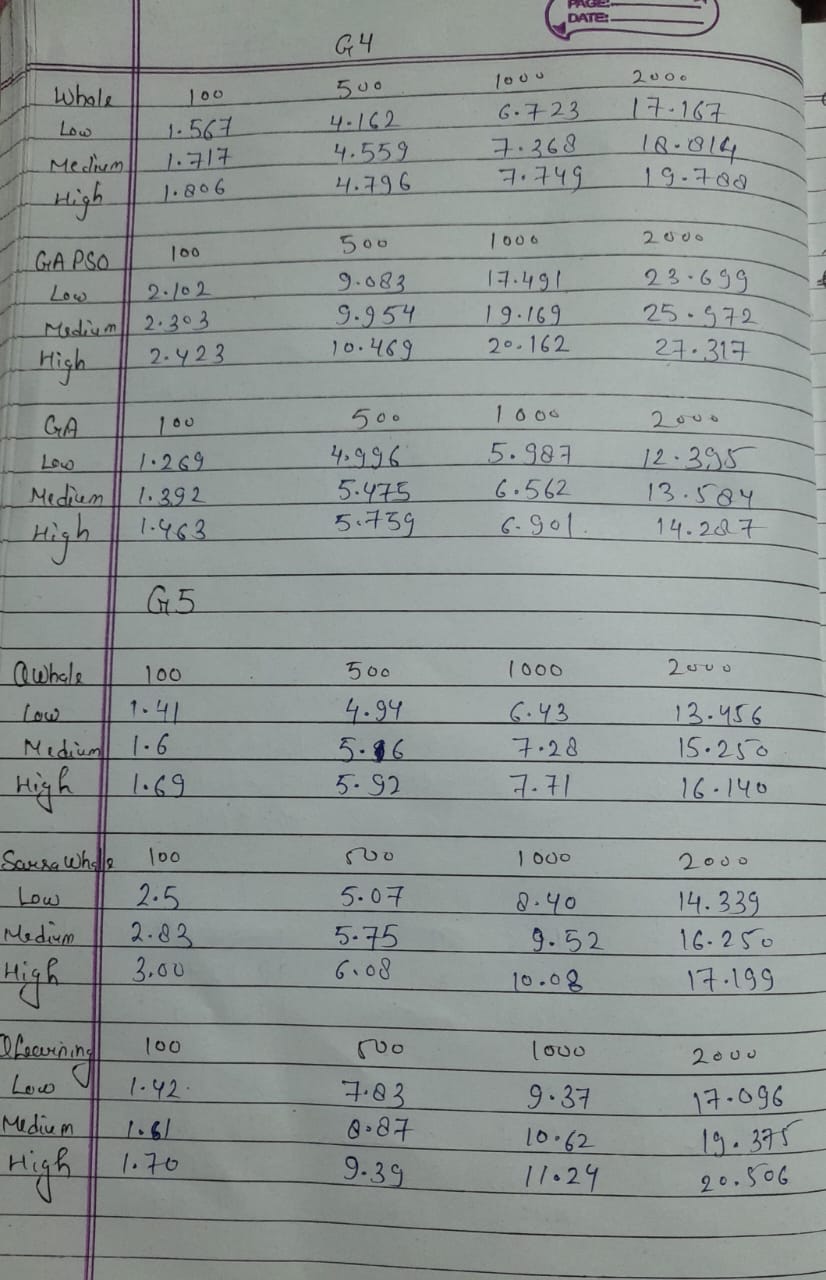 PAGE:
DATE:
G4
Whole 100 500 1000 2000
Low 1.567 4.162 6.723 17.167
Medium 1.717 4.559 7.368 18.814
High 1.806 4.796 7.749 19.788
GAPSO 100 500 1000 2000
Low 2.102 9.083 17.491 23.699
Medium 2.303 9.954 19.169 25.972
High 2.423 10.469 20.162 27.317
GA 100 500 1000 2000
Low 1.269 4.996 5.987 12.395
Medium 1.392 5.475 6.562 13.584
High 1.463 5.759 6.901 14.287
G5
QWhale 100 500 1000 2000
Low 1.41 4.94 6.43 13.456
Medium 1.6 7.28 15.250
High 1.69 5.92 7.71 16.140
Sarsa Whale 100 500 1000 2000
Low 2.5 5.07 8.40 14.339
Medium 2.83 5.75 9.52 16.250
High 3.00 6.08 10.08 17.199
QLearning 100 500 1000 2000
Low 1.42 7.83 9.37 17.096
Medium 1.61 8.87 10.62 19.375
High 1.70 9.39 11.24 20.506